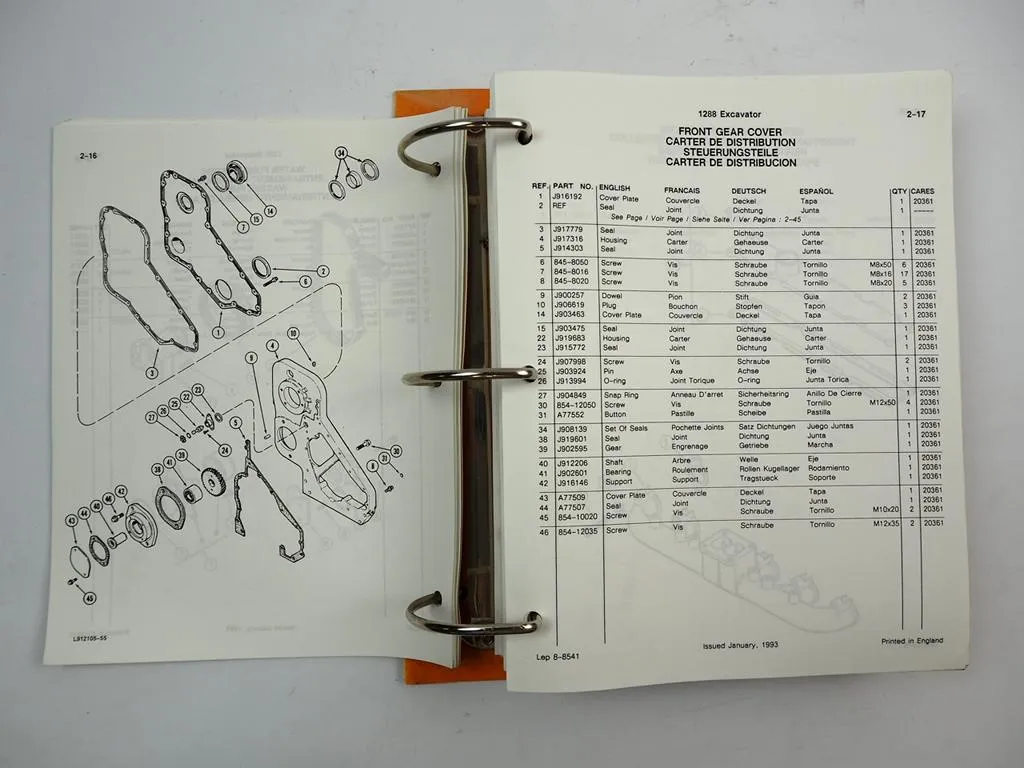 2-16
34
14
15
7
2
6
1
10
4
9
3
23
22
25
26
27
5
24
39
41
38
31
30
8
42
46
40
44
43
45
L912105-55
1288 Excavator
2-17
FRONT GEAR COVER
CARTER DE DISTRIBUTION
STEUERUNGSTEILE
CARTER DE DISTRIBUCION
REF. PART NO. ENGLISH FRANCAIS DEUTSCH ESPAÑOL QTY CARES
1 J916192 Cover Plate Couvercle Deckel Tapa 1 20361
2 REF Seal Joint Dichtung Junta 1 -----
See Page / Voir Page / Siehe Seite / Ver Pagina : 2-45
3 J917779 Seal Joint Dichtung Junta 1 20361
4 J917316 Housing Carter Gehaeuse Carter 1 20361
5 J914303 Seal Joint Dichtung Junta 1 20361
6 845-8050 Screw Vis Schraube Tornillo M8x50 6 20361
7 845-8016 Screw Vis Schraube Tornillo M8x16 17 20361
8 845-8020 Screw Vis Schraube Tornillo M8x20 5 20361
9 J900257 Dowel Pion Stift Guia 2 20361
10 J906619 Plug Bouchon Stopfen Tapon 3 20361
14 J903463 Cover Plate Couvercle Deckel Tapa 1 20361
15 J903475 Seal Joint Dichtung Junta 1 20361
22 J919683 Housing Carter Gehaeuse Carter 1 20361
23 J915772 Seal Joint Dichtung Junta 1 20361
24 J907998 Screw Vis Schraube Tornillo 2 20361
25 J903924 Pin Axe Achse Eje 1 20361
26 J913994 O-ring Joint Torique O-ring Junta Torica 1 20361
27 J904849 Snap Ring Anneau D'arret Sicherheitsring Anillo De Cierre 1 20361
30 854-12050 Screw Vis Schraube Tornillo M12x50 4 20361
31 A77552 Button Pastille Scheibe Pastilla 1 20361
34 J908139 Set Of Seals Pochette Joints Satz Dichtungen Juego Juntas 1 20361
38 J919601 Seal Joint Dichtung Junta 1 20361
39 J902595 Gear Engrenage Getriebe Marcha 1 20361
40 J912206 Shaft Arbre Welle Eje 1 20361
41 J902601 Bearing Roulement Rollen Kugellager Rodamiento 1 20361
42 J916146 Support Support Tragstueck Soporte 1 20361
43 A77509 Cover Plate Couvercle Deckel Tapa 1 20361
44 A77507 Seal Joint Dichtung Junta 1 20361
45 854-10020 Screw Vis Schraube Tornillo M10x20 2 20361
46 854-12035 Screw Vis Schraube Tornillo M12x35 2 20361
Lep 8-8541
Issued January, 1993
Printed in England